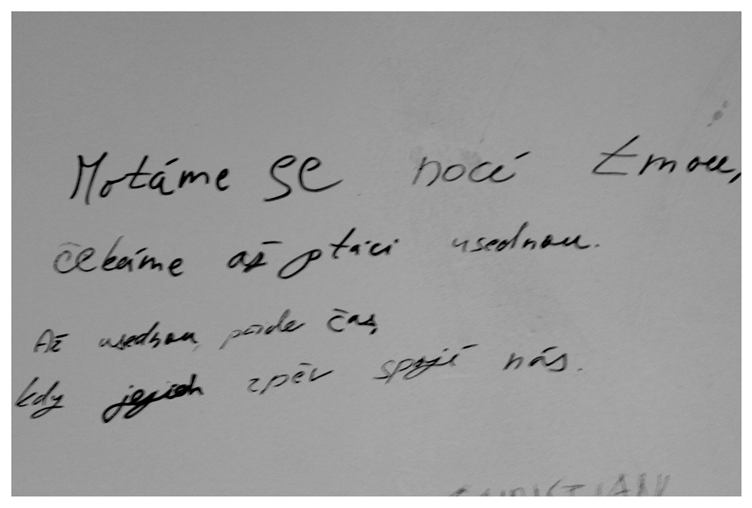 Motáme se nocí tmou,
čekáme až ptáci usednou.
Až usednou, přide čas,
kdy jejich zpěv spojí nás.